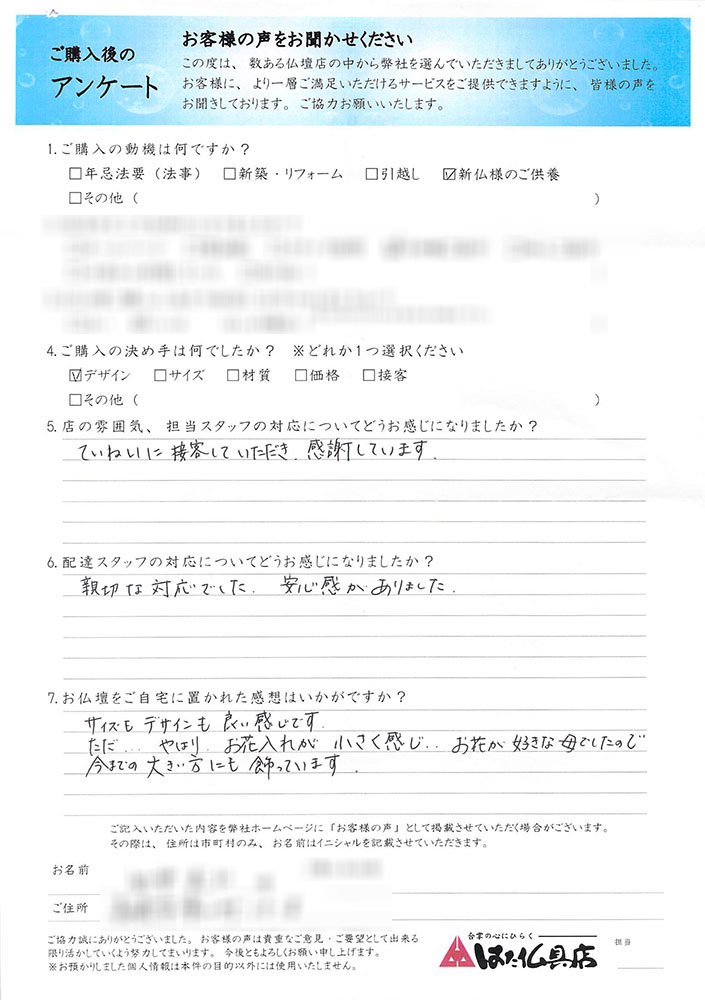 ご購入後の
アンケート
お客様の声をお聞かせください
この度は、数ある仏壇店の中から弊社を選んでいただきましてありがとうございました。
お客様に、より一層ご満足いただけるサービスをご提供できますように、皆様の声を
お聞きしております。ご協力お願いいたします。
1.ご購入の動機は何ですか？
□年忌法要（法事） □新築・リフォーム □引越し ☑新仏様のご供養
□その他（ ）
4.ご購入の決め手は何でしたか？ ※どれか1つ選択ください
☑デザイン □サイズ □材質 □価格 □接客
□その他（ ）
5.店の雰囲気、担当スタッフの対応についてどうお感じになりましたか？
ていねいに接客していただき、感謝しています。
6.配達スタッフの対応についてどうお感じになりましたか？
親切な対応でした。安心感がありました。
7.お仏壇をご自宅に置かれた感想はいかがですか？
サイズもデザインも良い感じです。
ただ… やはり、お花入れが小さく感じ‥お花が好きな母でしたので
今までの大きい方にも飾っています。
ご記入いただいた内容を弊社ホームページに「お客様の声」として掲載させていただく場合がございます。
その際は、住所は市町村のみ、お名前はイニシャルを記載させていただきます。
お名前
ご住所
ご協力誠にありがとうございました。お客様の声は貴重なご意見・ご要望として出来る
限り活かしていくよう努力してまいります。今後ともよろしくお願い申し上げます。
※お預かりしました個人情報は本件の目的以外には使用いたしません。
合掌の心にひらく
はた仏具店
担当